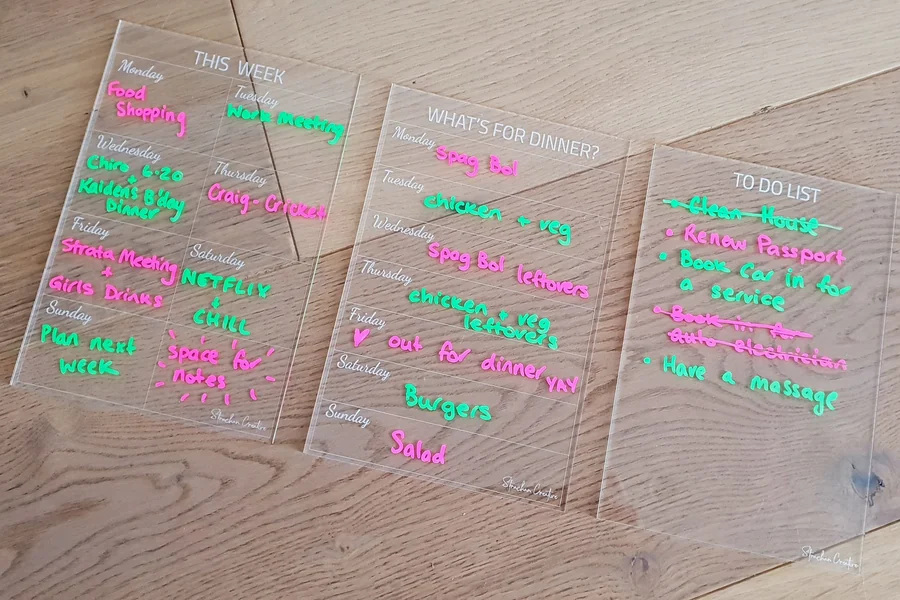 THIS WEEK
Monday
Food
Shopping
Tuesday
Work Meeting
Wednesday
Chiro 6:20
+
Kaiden's B'day
Dinner
Thursday
Craig - Cricket
Friday
Strata Meeting
+
Girls Drinks
Saturday
NETFLIX
+
CHILL
Sunday
Plan next
week
Space for
notes
Strachan Creative
WHAT'S FOR DINNER?
Monday
Spag Bol
Tuesday
chicken + veg
Wednesday
Spag Bol leftovers
Thursday
chicken + veg
leftovers
Friday
♥ out for dinner YAY
Saturday
Burgers
Sunday
Salad
Strachan Creative
TO DO LIST
• Clean House
• Renew Passport
• Book Car in for
a service
• Book in for
auto electrician
• Have a massage
Strachan Creative